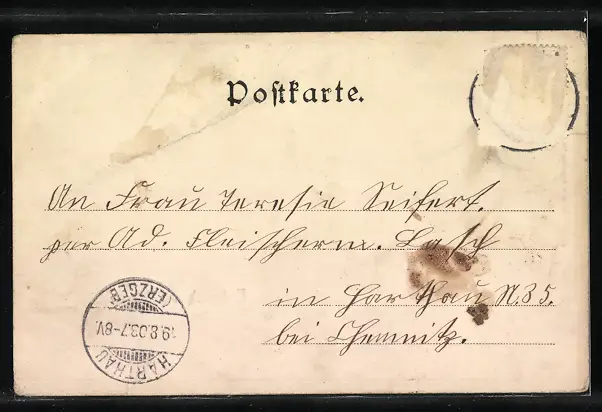 Postkarte.
An Frau Teresie Seifert.
per Ad. Fleischerm. Lasch
in Harthau N. 35.
bei Chemnitz.
HARTHAU
(ERZGEB.)
19.8.03.7-8V.